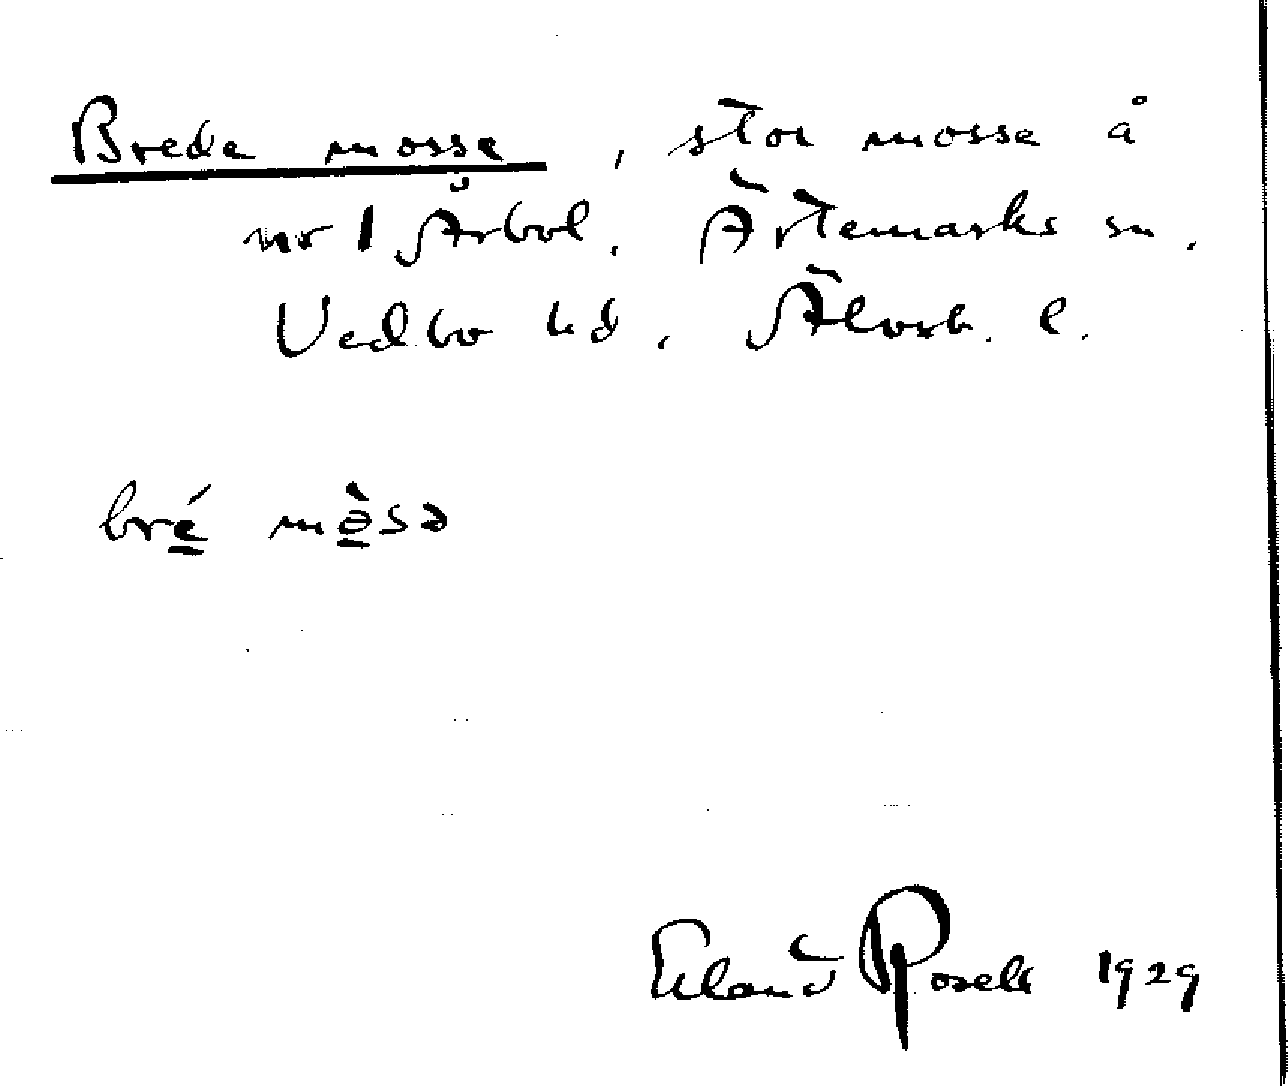 Breda mosse, stor mosse å
nr 1 Årbol. Ärtemarks sn.
Vedbo hd, Älvsb. l.
bré mòsə
Erland Rosell 1929